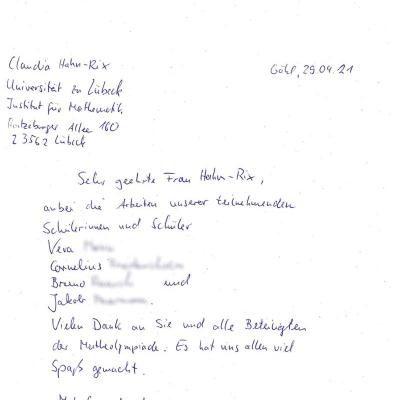 Claudia Hahn-Rix
Göhl, 29.04.21
Universität zu Lübeck
Institut für Mathematik
Ratzeburger Allee 160
23562 Lübeck
Sehr geehrte Frau Hahn-Rix,
anbei die Arbeiten unserer teilnehmenden
Schülerinnen und Schüler
Vera
Cornelius
Bruno und
Jakob .
Vielen Dank an Sie und alle Beteiligten
der Matheolympiade. Es hat uns allen viel
Spaß gemacht.